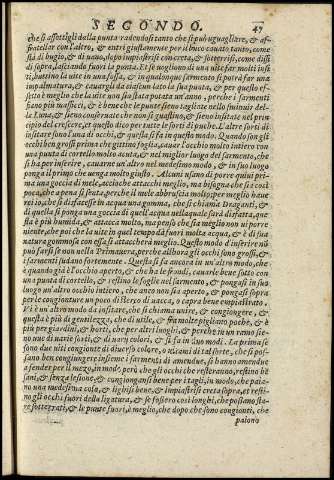 SECONDO. 47
che si assottigli della punta radendosi tanto che si può uguagliare, & af-
fratellar con l'altro, & entri giustamente per il buco cauato tanto, come
stà di bugio, & di uano, dopo impiastrisi con creta, & sotterrisi, come dissi
di sopra, lasciando fuori la ponta. Et se uogliono di una uite far molti insi
ti, buttino la uite in una fossa, & in qualunque sarmento si potrà far una
impalmatura, & cauargli da ciascun lato la sua punta, & per questo ef-
fetto è meglio che la uite non sia stata potata un' anno, perche i sarmenti
siano più massicci, & è bene che le punte sieno tagliate nello sminuir del-
la Luna, & sieno conseruate che non si guastino, & sieno insitate nel prin
cipio del crescere, et questo dico per tutte le sorti di piante. L'altre sorti di
insitare sono una di occhi, & quella si fa in questo modo. Quando son gli
occhi ben grossi prima che gittino foglia, cauar l'occhio molto intiero con
una punta di cortello molto acuta, & nel miglior luogo del sarmento, che
si ha per inserire, cauarne un'altro nel medesimo modo, & in suo luogo
ponga il primo che uenga molto giusto. Alcuni usano di porre quiui pri-
ma una goccia di mele, accioche attacchi meglio, ma bisogna che sia così
poca, che a pena si senta, perche il mele abbruscia molto; per meglio haue
rei io, che si disfacesse in acqua una gomma, che si chiama Draganti, &
di quella si ponga una goccia di quell'acqua nella quale sarà disfatta, que
sta è più humida, & attacca molto, ma penso che sia meglio non ui porre
niente, che poi che la uite in quel tempo dà fuori molta acqua, & è di sua
natura gommosa con essa si attaccherà meglio. Questo modo di inserire nō
può farsi se non nella Primauera, perche allhora gli occhi sono grossi, &
i sarmenti sudano fortemente. Questa si fa ancora in un'altro modo, che
è quando già è l'occhio aperto, & che ha le frondi, cauarle bene sotto con
una punta di cortello, & restino le foglie nel sarmento, & pongasi in suo
luogo un'altro occhio intiero, che anco non sia aperto, & pongasi sopra
per le congionture un poco di sterco di uacca, o capra bene impiastrato.
Vi è un'altro modo di insitare, che si chiama unire, & congiongere, &
questa è più di gentilezza, che di utile, & fra molte pigliano poche, & è
più per giardini, & horti, che per altri luoghi, & perche in un ramo sie-
no uue di uarie sorti, & di uarij colori, & si fa in duoi modi. La prima se
sono due uiti congionte di diuerso colore, o uicini di tal sorte, che si pos-
sano ben congiungere insieme i sarmenti di amendue, si hanno amendue
a fender per il mezo, in modo però che gli occhi che resteranno, restino bē
sani, & senza lesione, & congiongansi bene per i tagli, in modo, che paio-
no una medesima cosa, & leghisi bene, & impiastrisi creta sopra, et resti-
no gli occhi fuori della ligatura, & se fossero così longhi, che possano sta-
re sotterrati, & le punte fuori, è meglio, che dopo che sono congionti, che
paiono